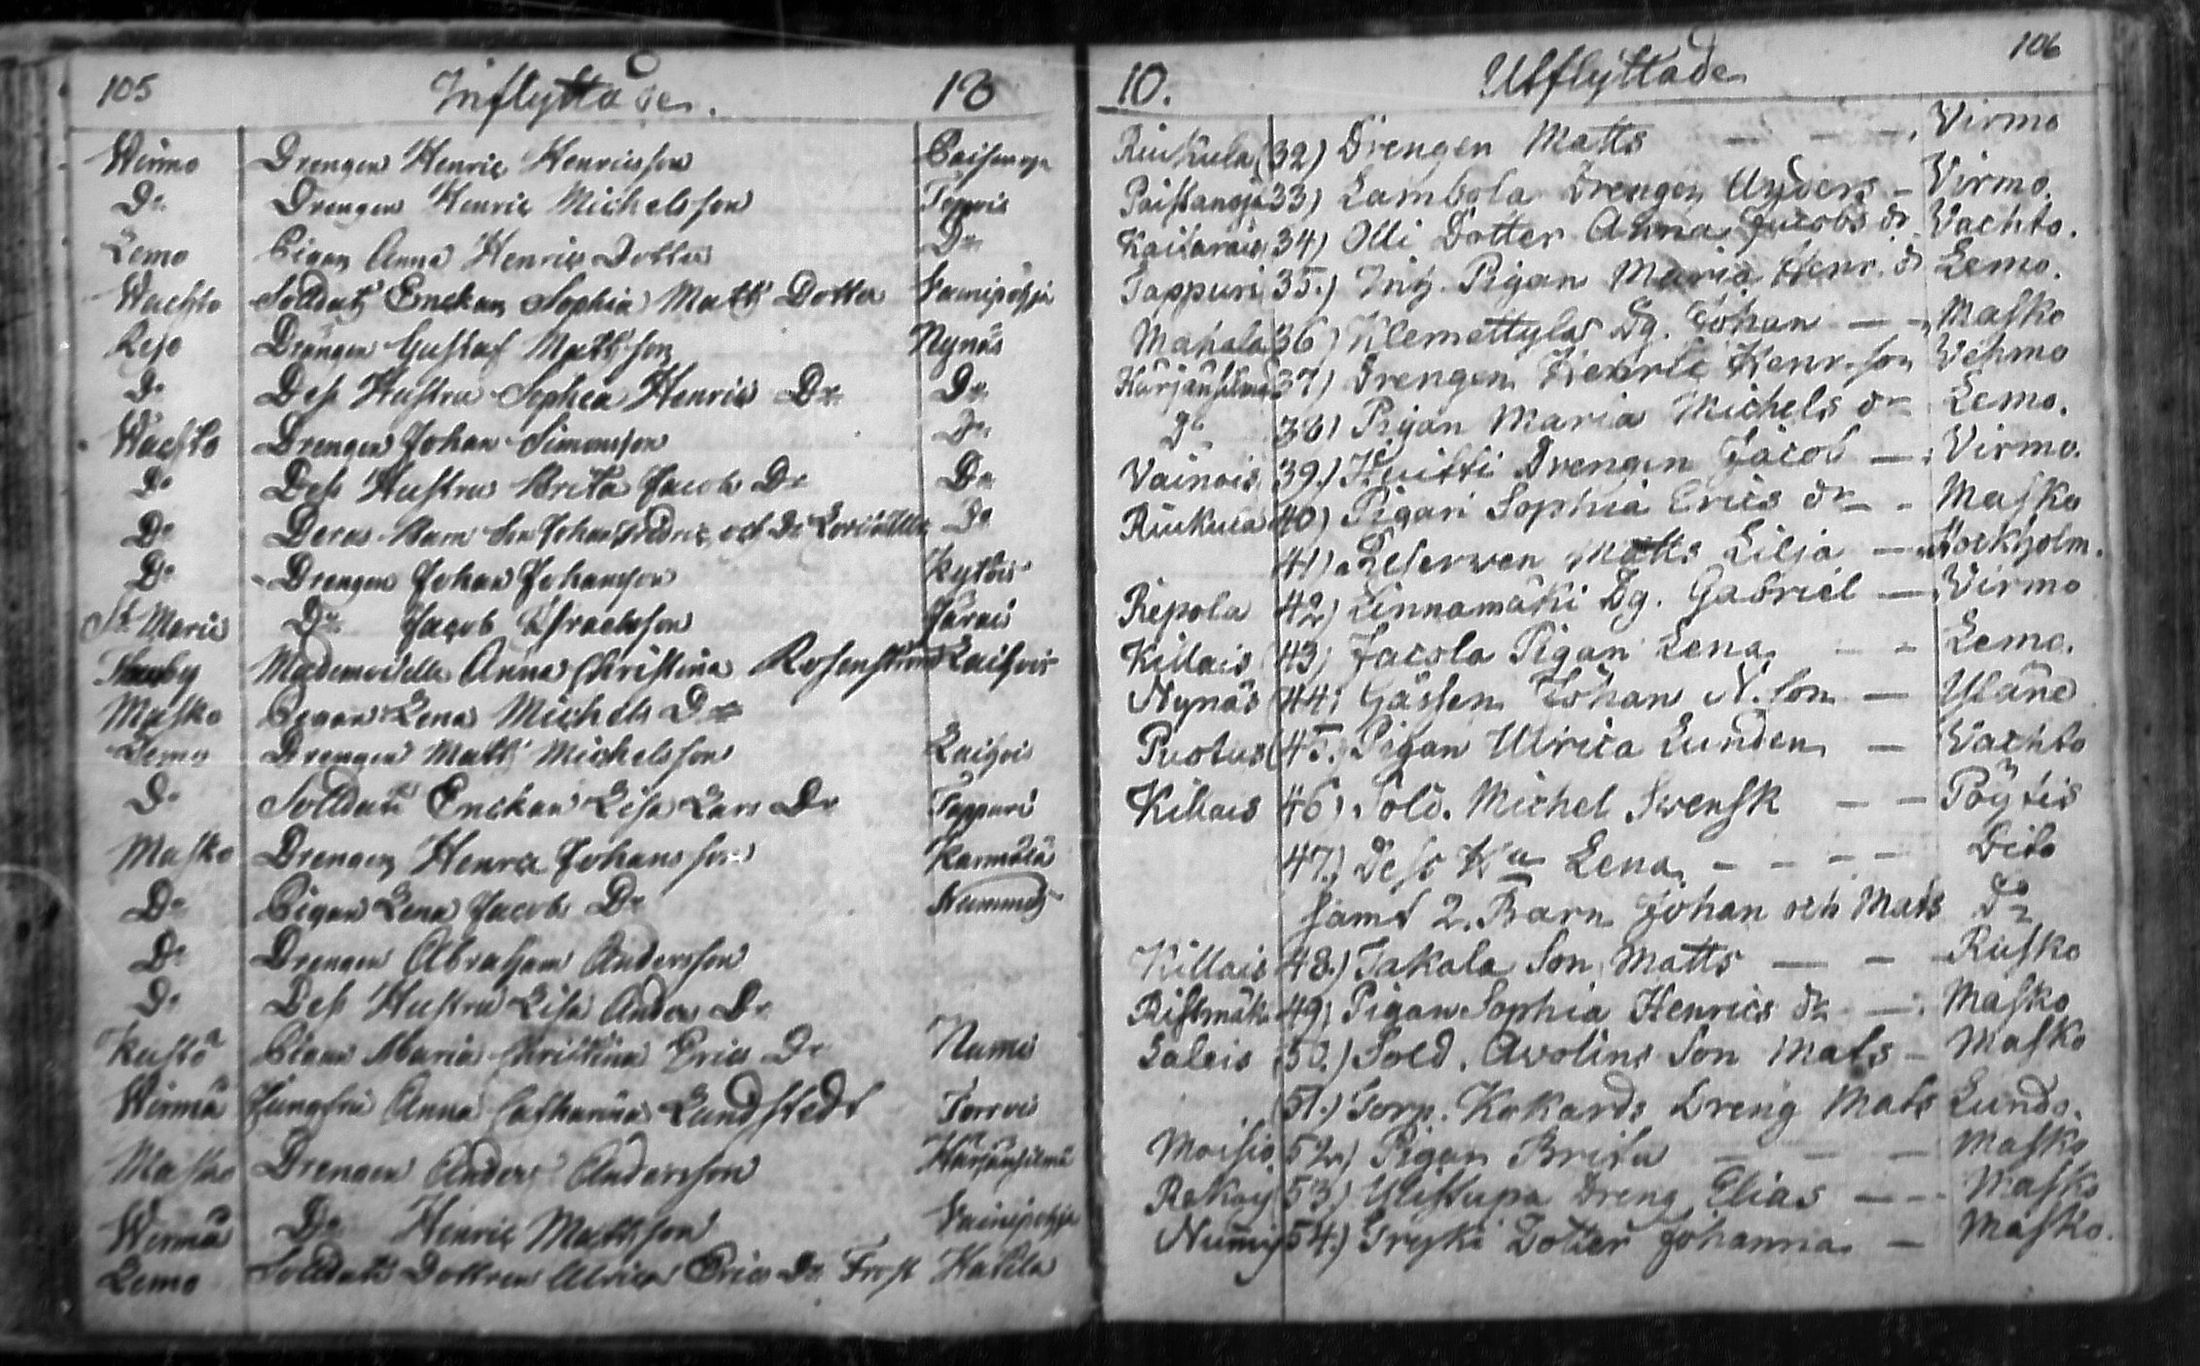 105 Inflyttade. 18
Wirmo Drengen Henric Henricsson
Do Drengen Henric Michelsson
Lemo Pigan Anna Henrics Dotter Do
Wachto Soldats Enckan Sophia Matts Dotter Vainipohja
Reso Drängen Gustaf Mattsson Nynäs
Do Dess Hustru Sophia Henrics Dr Do
Wachto Drengen Johan Simonsson Do
Do Dess Hustru Brita Jacobs Dr Do
Do Deras Barn Son Johan Fredric och Dr Do
Do Drengen Johan Johansson Kytöis
St Marie Do Jacob Israelsson Järais
Mademoiselle Anna Christina Laihois
Masko Pigan Lena Michels Dr
Lemo Drengen Matts Michelsson Laihois
Do Soldats Enckan Lisa Lars Dr Tappuri
Masko Drengen Henric Johansson Karmala
Do Pigan Lena Jacobs Dr
Do Drengen Abraham Andersson
Do Dess Hustru Lisa Anders Dr
Kustö Pigan Maria Christina Erics Dr Numis
Wirmå Jungfru Anna Catharina Lundstedt
Masko Drengen Anders Andersson Härjänsilmä
Wirmå Do Henric Mattsson Vainipohja
Lemo Soldats Dottren Ulrica Erics Dr Frost Hakila
10. Utflyttade 106
Riukula (32) Drengen Matts — — — Virmo
33) Lambola Drengen — Virmo.
34) Olli Dotter Anna Jacobs dr Vachto.
Tappuri 35.) Inh. Pigan Maria Henr. dr Lemo.
Mahala 36) Klemettylä Dg. Johan — — Masko
Härjänsilmä 37) Drengen Henric Henr. son Vehmo
do 38) Pigan Maria Michels dr Lemo.
Vainois 39.) Huitti Drengen Jacob — Virmo.
Riukula 40) Pigan Sophia Erics dr — Masko
41) Reserwen Matts Lilja — Stockholm.
Repola 42) Linnamäki Dg. Gabriel — Virmo
Killais 43) Jacola Pigan Lena — — Lemo.
Nynäs 44) Gässen Johan N. son — Yläne
Puotus 45.) Pigan Ulrica Lunden — Vachto
Killais 46) Sold. Michel Swensk — — Pöytis
47.) Dess Hu Lena — — — — Dito
samt 2. Barn Johan och Mats do
Killais 48.) Takala Son Matts — — Rusko
Ristmäk 49) Pigan Sophia Henrics dr — Masko
Saleis 50.) Sold. Avolins Son Mats — Masko
51.) Torp. Kokards Dreng Mats Lundo.
Moisio 52.) Pigan Brita — — — Masko
53) Ylistupa Dreng Elias — — Masko
Numis 54.) Dotter Johanna — Masko.